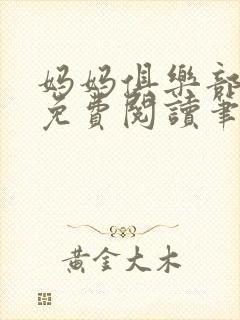 媽媽俱樂部
免費閱讀筆
黃金大木